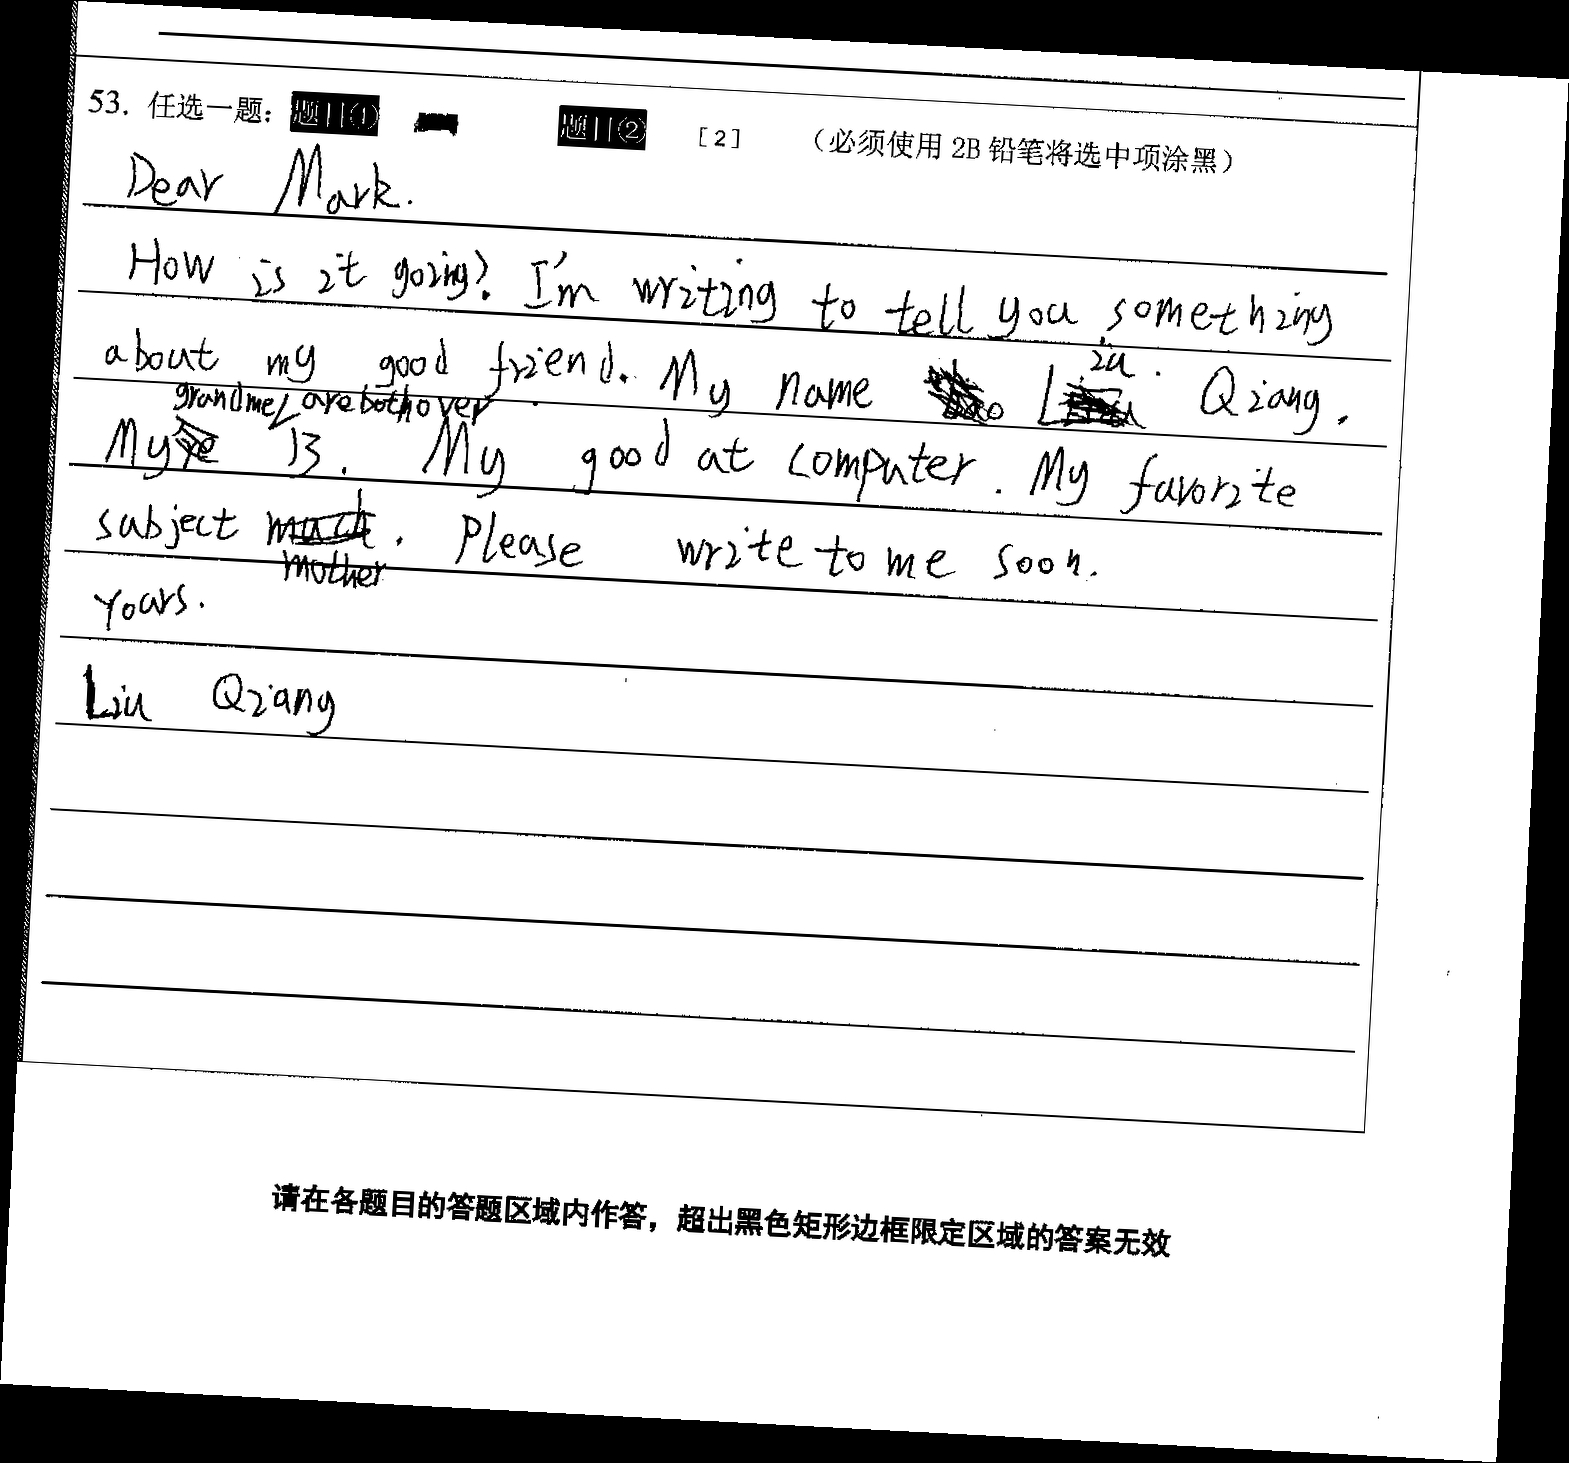 53. 任选一题： 题目① 题目② [2] （必须使用 2B 铅笔将选中项涂黑）
Dear Mark.
How is it going? I'm writing to tell you something
about my good friend. My name Liu Qiang.
grandme are both over
My 13. My good at computer. My favorite
subject . Please write to me soon.
mother
Yours.
Liu Qiang
请在各题目的答题区域内作答，超出黑色矩形边框限定区域的答案无效